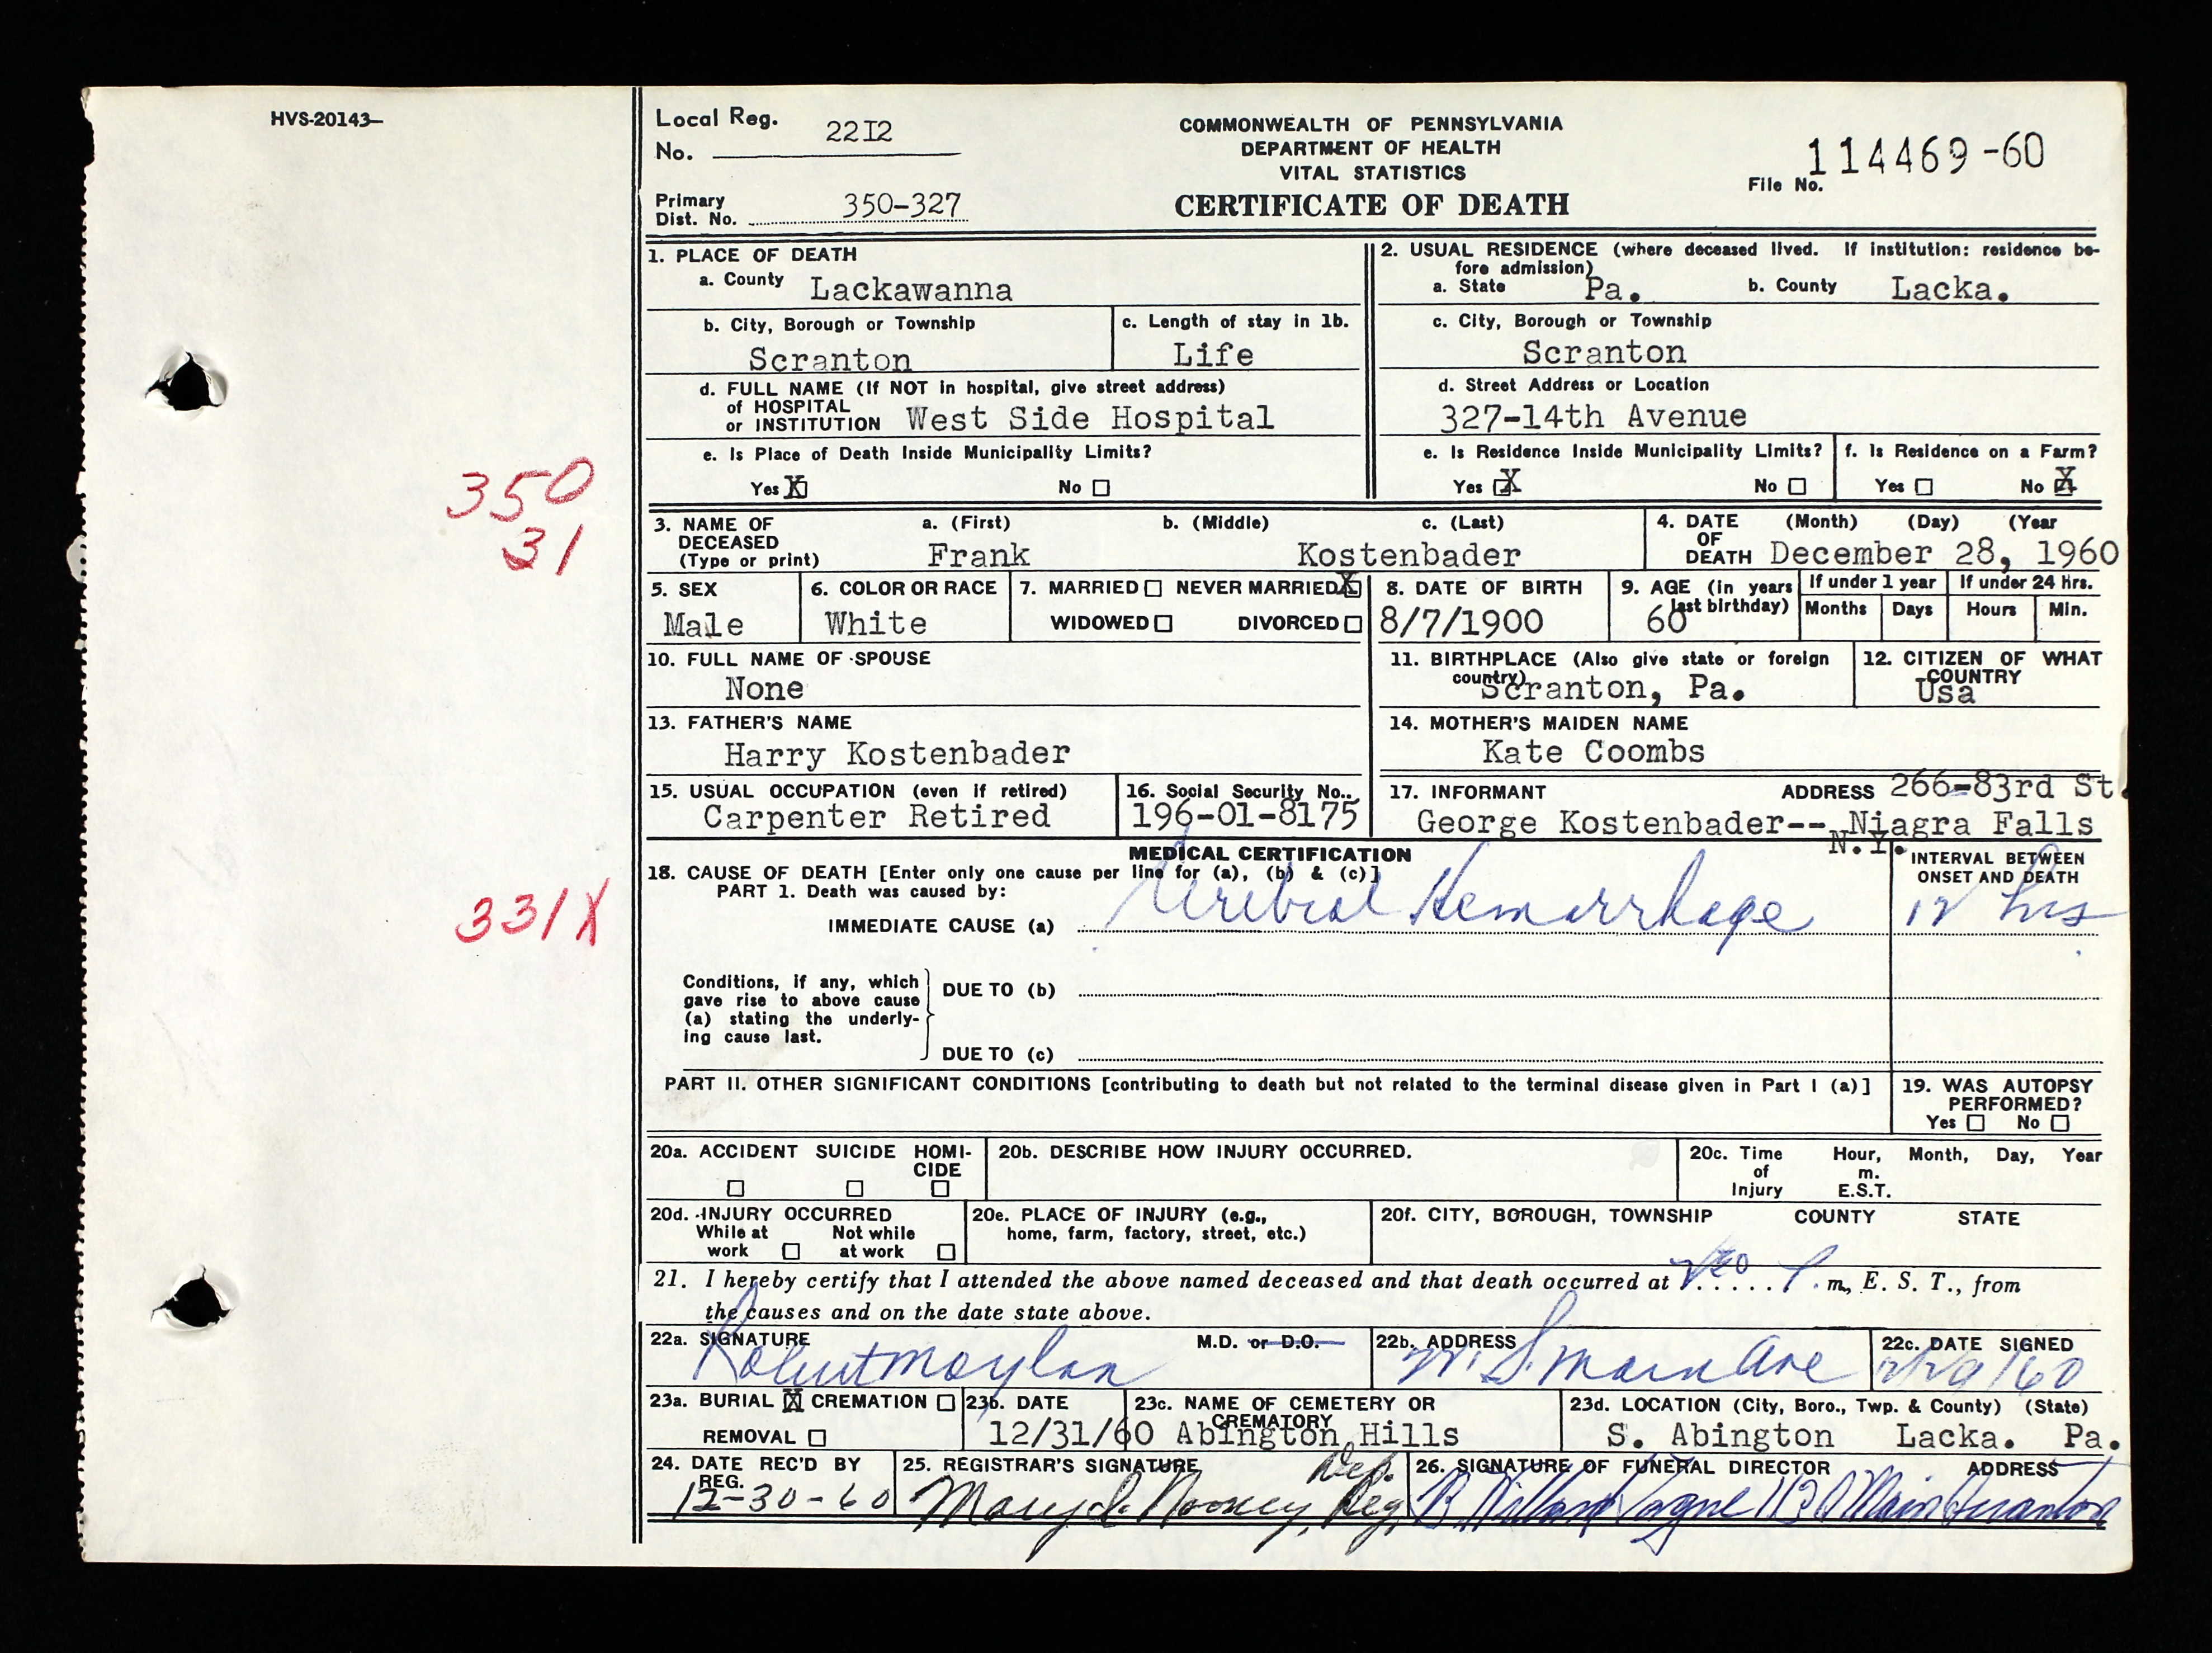 HVS-20143-
Local Reg. No. 22I2
COMMONWEALTH OF PENNSYLVANIA
DEPARTMENT OF HEALTH
VITAL STATISTICS
CERTIFICATE OF DEATH
File No. 114469-60
Primary Dist. No. 350-327
1. PLACE OF DEATH
a. County Lackawanna
b. City, Borough or Township
Scranton
c. Length of stay in 1b.
Life
d. FULL NAME (If NOT in hospital, give street address)
of HOSPITAL
or INSTITUTION West Side Hospital
e. Is Place of Death Inside Municipality Limits?
Yes X No
2. USUAL RESIDENCE (where deceased lived. If institution: residence be-
fore admission)
a. State Pa. b. County Lacka.
c. City, Borough or Township
Scranton
d. Street Address or Location
327-14th Avenue
e. Is Residence Inside Municipality Limits?
Yes X No
f. Is Residence on a Farm?
Yes No X
350
31
3. NAME OF DECEASED (Type or print)
a. (First) b. (Middle) c. (Last)
Frank Kostenbader
4. DATE OF DEATH (Month) (Day) (Year
December 28, 1960
5. SEX
Male
6. COLOR OR RACE
White
7. MARRIED NEVER MARRIED X
WIDOWED DIVORCED
8. DATE OF BIRTH
8/7/1900
9. AGE (in years last birthday)
60
If under 1 year
Months Days
If under 24 hrs.
Hours Min.
10. FULL NAME OF SPOUSE
None
11. BIRTHPLACE (Also give state or foreign country)
Scranton, Pa.
12. CITIZEN OF WHAT COUNTRY
Usa
13. FATHER'S NAME
Harry Kostenbader
14. MOTHER'S MAIDEN NAME
Kate Coombs
15. USUAL OCCUPATION (even if retired)
Carpenter Retired
16. Social Security No..
196-01-8175
17. INFORMANT ADDRESS 266-83rd St.
George Kostenbader-- Niagra Falls
N.Y.
MEDICAL CERTIFICATION
18. CAUSE OF DEATH [Enter only one cause per line for (a), (b) & (c)]
PART 1. Death was caused by:
IMMEDIATE CAUSE (a) Cerebral Hemorrhage
INTERVAL BETWEEN
ONSET AND DEATH
12 hrs
331X
Conditions, if any, which
gave rise to above cause
(a) stating the underly-
ing cause last.
DUE TO (b)
DUE TO (c)
PART II. OTHER SIGNIFICANT CONDITIONS [contributing to death but not related to the terminal disease given in Part I (a)]
19. WAS AUTOPSY
PERFORMED?
Yes No
20a. ACCIDENT SUICIDE HOMI-
CIDE
20b. DESCRIBE HOW INJURY OCCURRED.
20c. Time of Injury Hour, Month, Day, Year
m.
E.S.T.
20d. INJURY OCCURRED
While at work Not while at work
20e. PLACE OF INJURY (e.g.,
home, farm, factory, street, etc.)
20f. CITY, BOROUGH, TOWNSHIP COUNTY STATE
21. I hereby certify that I attended the above named deceased and that death occurred at P. m., E. S. T., from
the causes and on the date state above.
22a. SIGNATURE M.D. or D.O.
Robert Moylan
22b. ADDRESS
S. Main Ave
22c. DATE SIGNED
12/29/60
23a. BURIAL X CREMATION
REMOVAL
23b. DATE
12/31/60
23c. NAME OF CEMETERY OR CREMATORY
Abington Hills
23d. LOCATION (City, Boro., Twp. & County) (State)
S. Abington Lacka. Pa.
24. DATE REC'D BY REG.
12-30-60
25. REGISTRAR'S SIGNATURE
Dep. Reg.
26. SIGNATURE OF FUNERAL DIRECTOR ADDRESS
Main Scranton